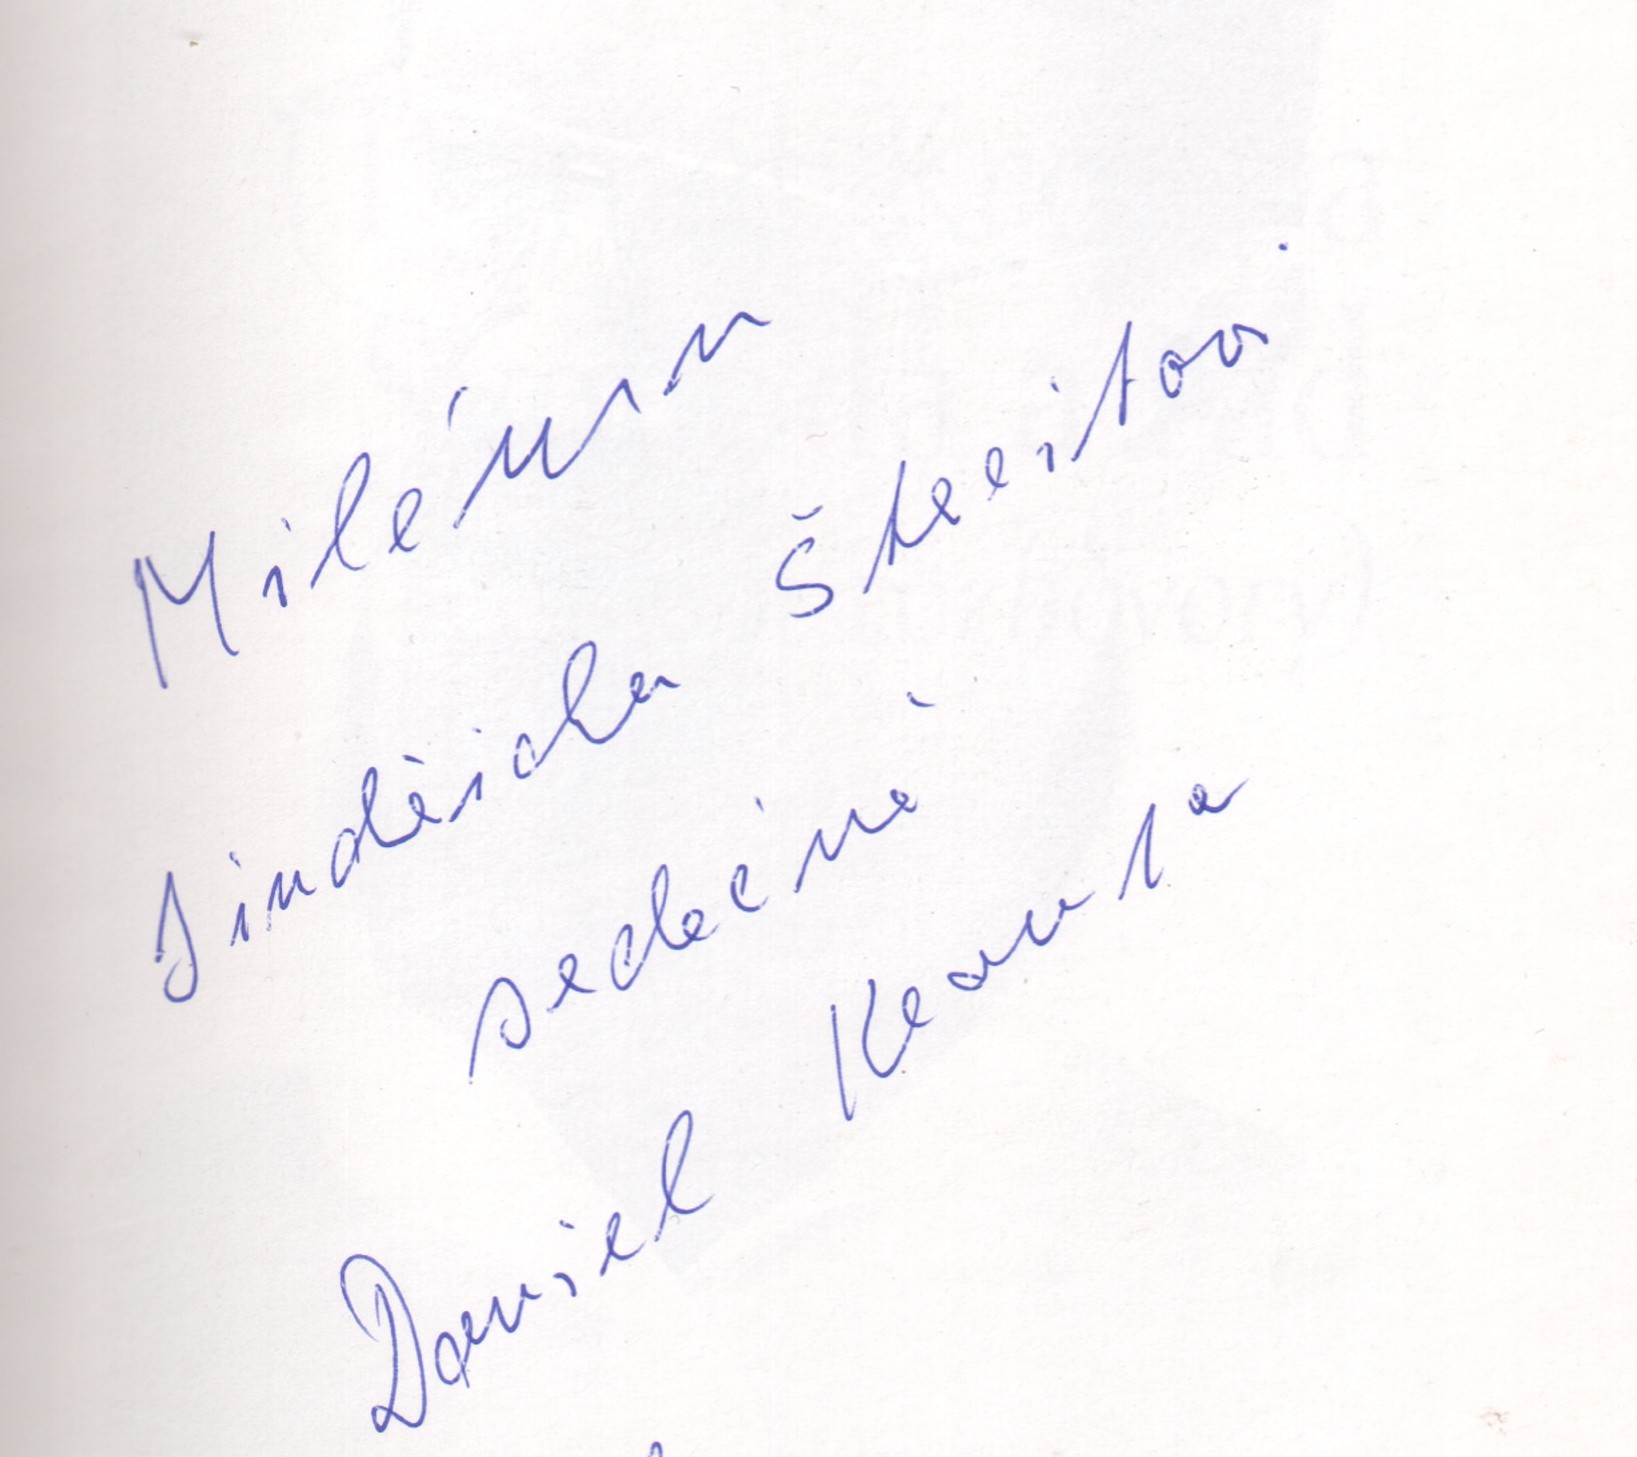 Milému
Jindřichu Štreitovi
srdečně
Daniel Kroupa